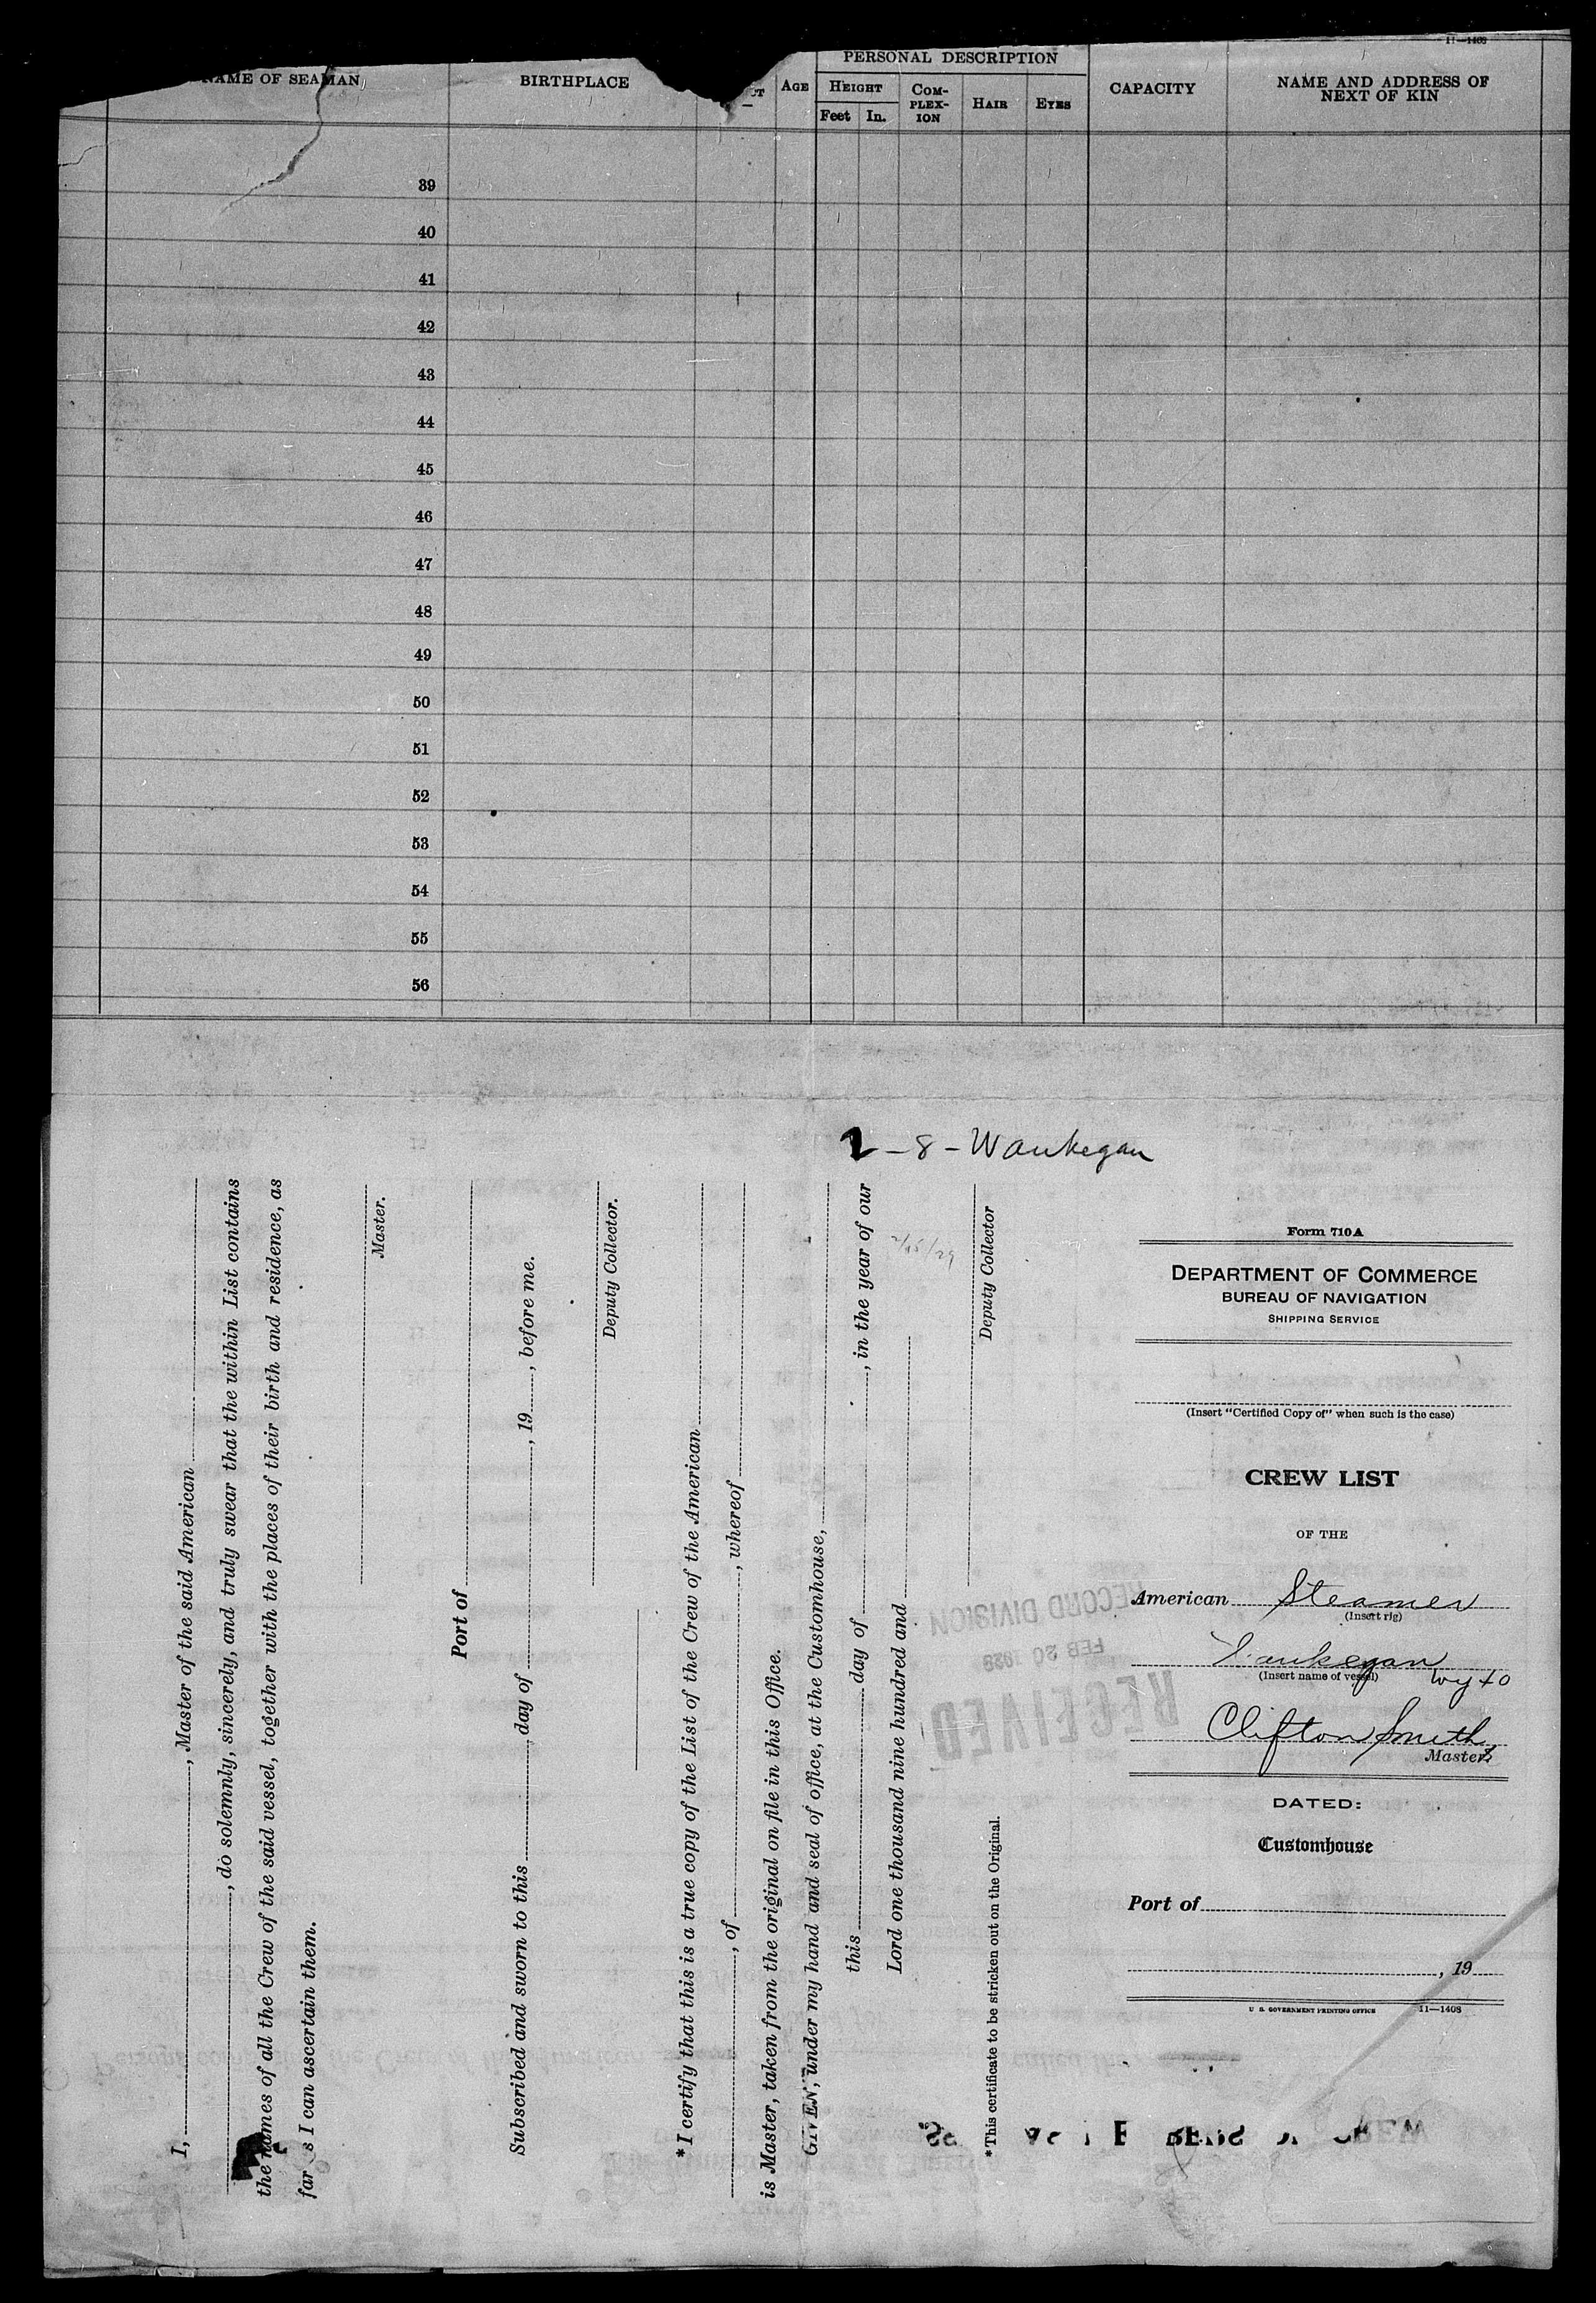 11—1408
NAME OF SEAMAN
BIRTHPLACE
AGE
PERSONAL DESCRIPTION
HEIGHT
Feet
In.
COM-
PLEX-
ION
HAIR
EYES
CAPACITY
NAME AND ADDRESS OF
NEXT OF KIN
39
40
41
42
43
44
45
46
47
48
49
50
51
52
53
54
55
56
2-8-Waukegan
I, , Master of the said American
, do solemnly, sincerely, and truly swear that the within List contains
the names of all the Crew of the said vessel, together with the places of their birth and residence, as
far as I can ascertain them.
Master.
Port of
Subscribed and sworn to this day of , 19 , before me.
Deputy Collector.
*I certify that this is a true copy of the List of the Crew of the American
, of , whereof
is Master, taken from the original on file in this Office.
GIVEN, under my hand and seal of office, at the Customhouse,
this day of , in the year of our
Lord one thousand nine hundred and
2/15/29
Deputy Collector
*This certificate to be stricken out on the Original.
RECORD DIVISION
FEB 20 1929
RECEIVED
Form 710A
DEPARTMENT OF COMMERCE
BUREAU OF NAVIGATION
SHIPPING SERVICE
(Insert "Certified Copy of" when such is the case)
CREW LIST
OF THE
American Steamer
(Insert rig)
Waukegan
(Insert name of vessel)
Clifton Smith
Master.
DATED:
Customhouse
Port of
, 19
U. S. GOVERNMENT PRINTING OFFICE 11—1408